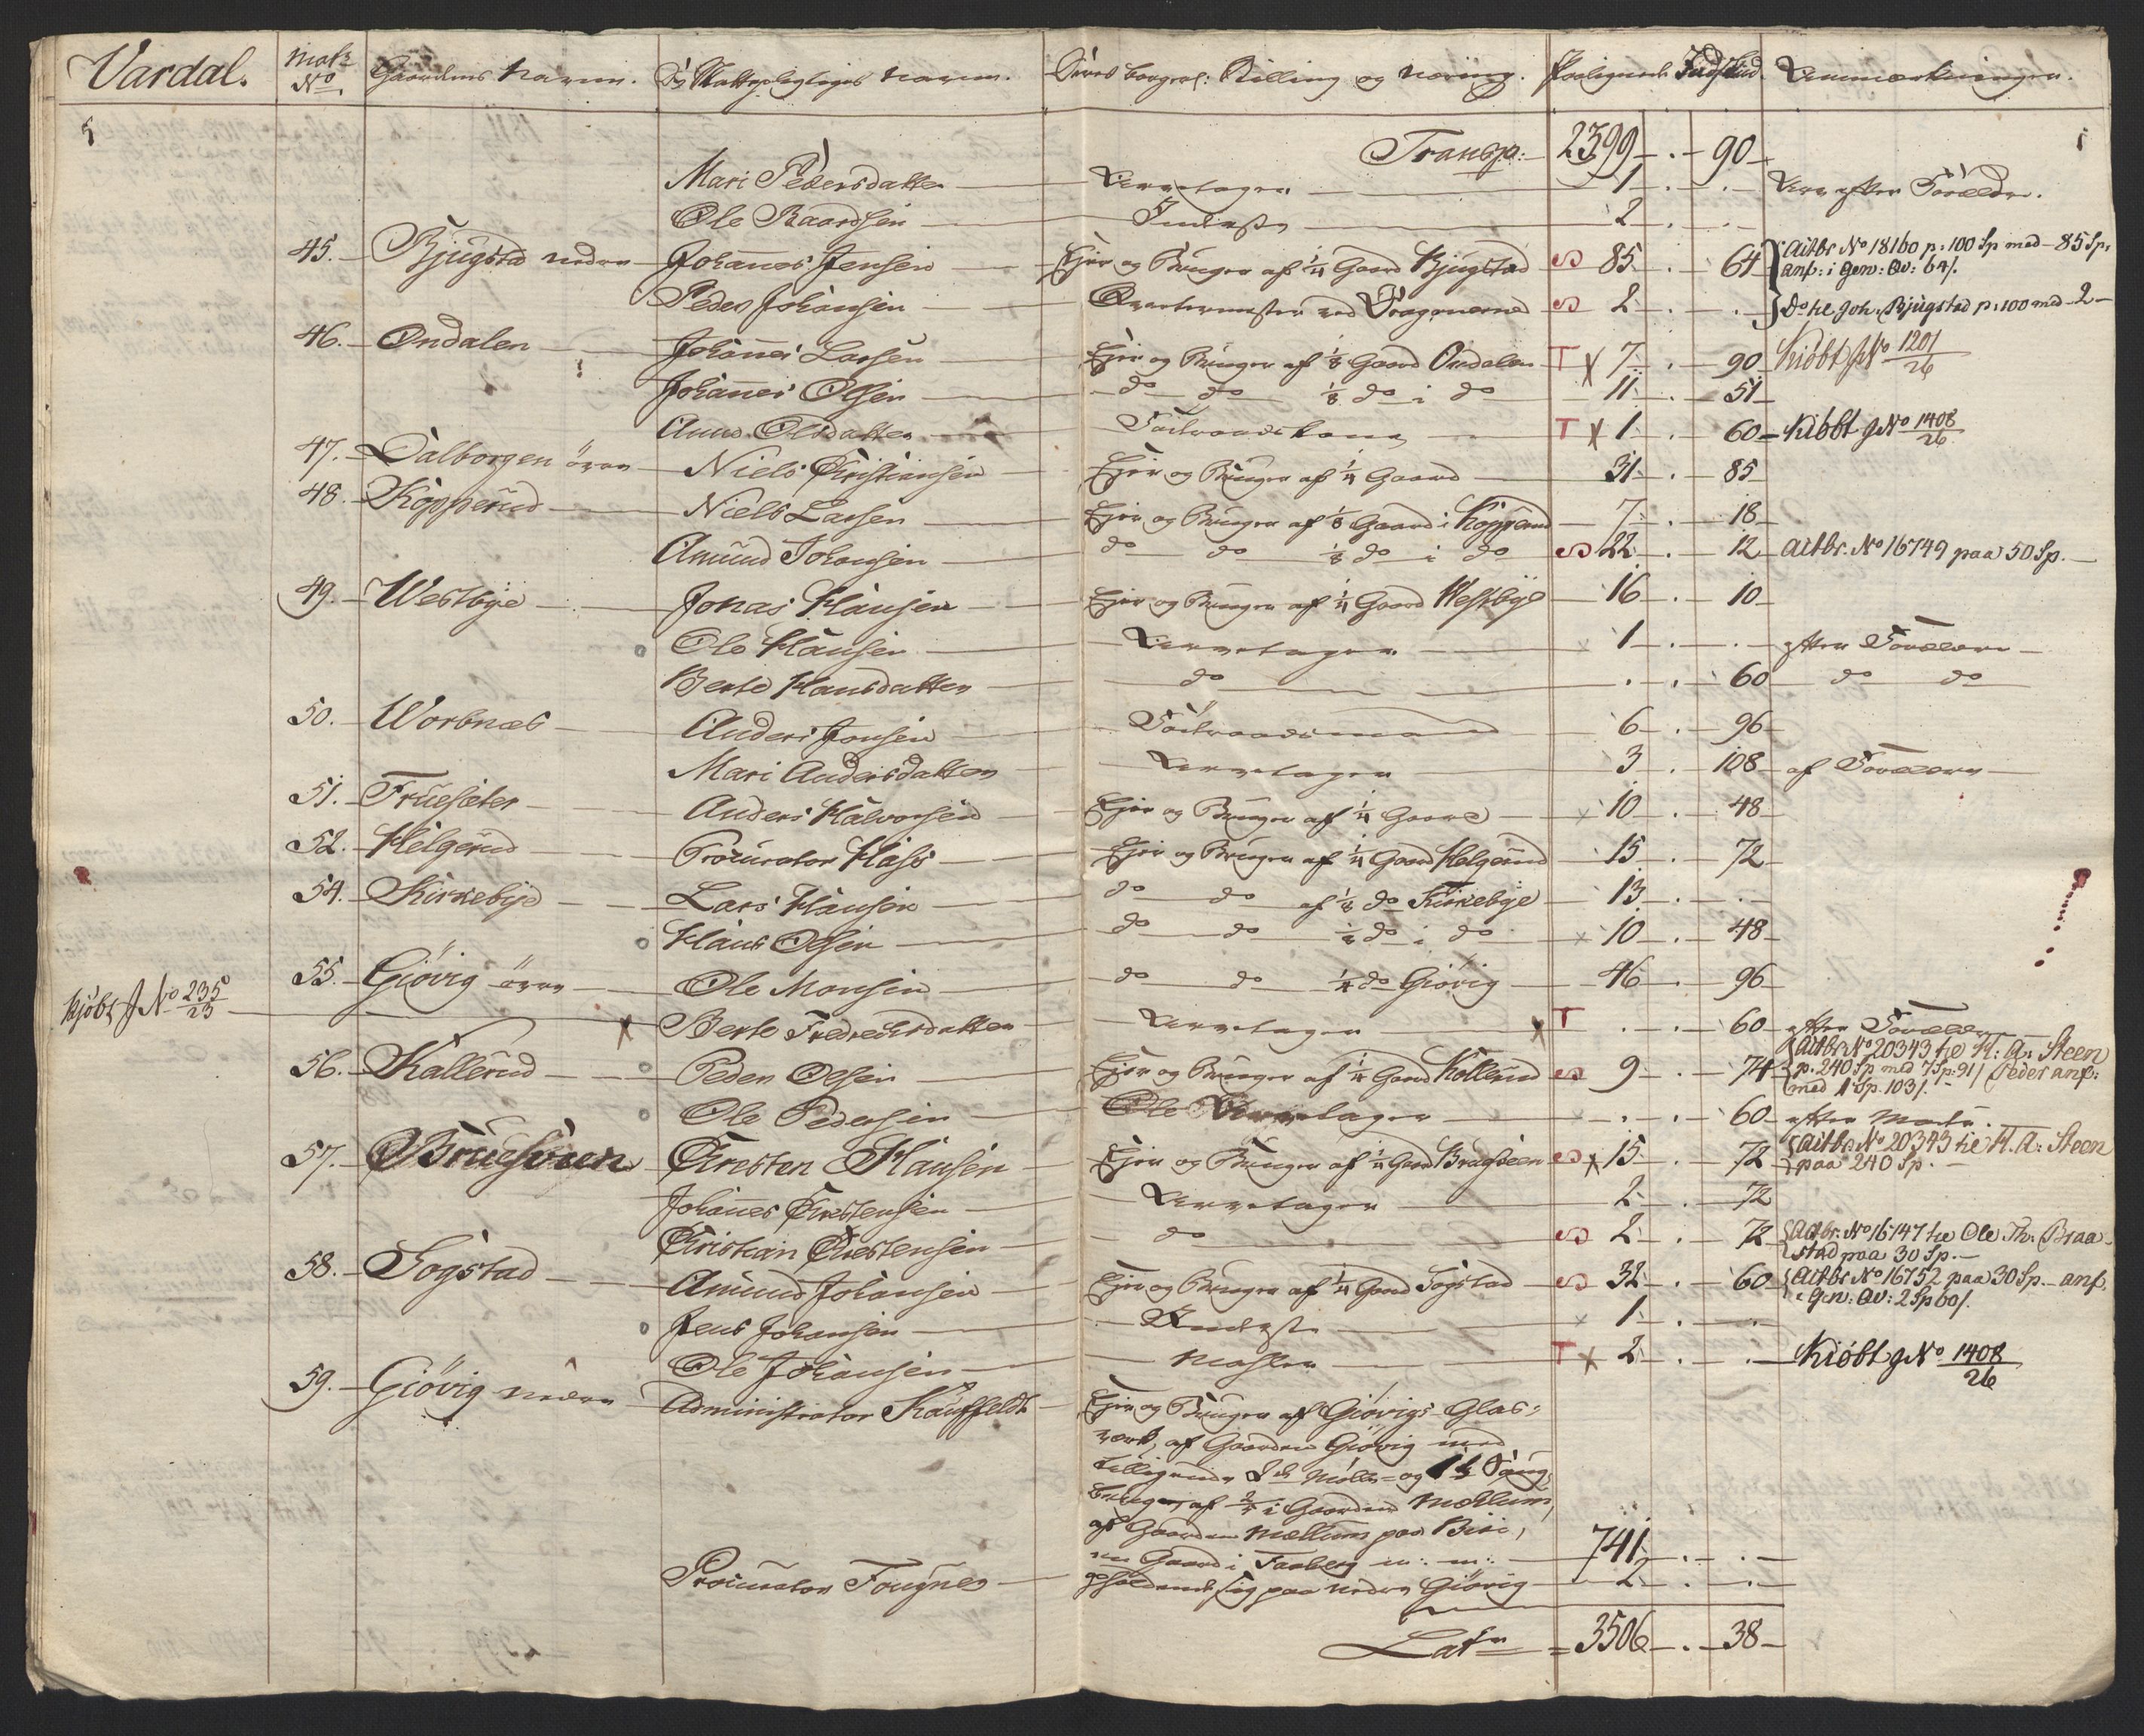 Vardal. Matr. No. Gaardens Navn. De Skattepligtiges Navn. Deres borgerl: Stilling og Næring. Paalignede Indskud. Anmærkninger.
Transp: 2399 - . - 90
Mari Pedersdatter - Arvetager - 1 - . - Arv efter Forældre.
Ole Baardsen - Inderste - 2 - . -
45. Bjugstad nedre - Johannes Jensen - Ejer og Bruger af 1/4 Gaard Bjugstad S 85 - 64 Actbr No 18160 p: 100 Sp med 85 Sp,
anf: i gen: Qv: 64/.
Peder Johansen - Qvarteermester ved Dragonerne S 2 . - Do til Joh. Bjugstad p: 100 med 2 -
46. Ondalen - Johannes Larsen - Ejer og Bruger af 1/8 Gaard Ondalen T x 7 - 90 Kiöbt J No 1201/26
Johannes Olsen - do do 1/8 do i do - 11 - 51
Anne Olsdatter - Föderaadskone T x 1 - 60 - Kiöbt J No 1408/26
47. Dalborgen övre - Niels Christiansen - Ejer og Bruger af 1/4 Gaard - 31 - 85
48. Kopperud - Niels Larsen - Ejer og Bruger af 1/8 Gaard i Kopperud - 7 - 18
Amund Johansen - do do 1/8 do i do S 22 - 12 - Actbr. No 16749 paa 50 Sp. -
49. Westbye - Jonas Hansen - Ejer og Bruger af 1/4 Gaard Westbye - 16 - 10
o Ole Hansen - Arvetager x 1 - . - efter Forældre
Berte Hansdatter - do - . - 60 do do
50. Worbnæs - Anders Jonsen - Föderaadsmand - 6 - 96
Mari Andersdatter - Arvetager - 3 - 108 - af Forældre
51. Fruesæter - Anders Halvorsen - Ejer og Bruger af 1/4 Gaard x 10 - 48
52. Helgerud - Procurator Hass - Ejer og Bruger af 1/4 Gaard Helgerud - 15 - 72
54. Kirkebye - Lars Hansen - do do af 1/8 do Kirkebye - 13 - .
o Hans Olsen - do do 1/8 do i do x 10 - 48
55. Giövig övre - Ole Monsen - do do 1/4 do Giövig - 46 - 96
Kjöbt J No 235/23 x Berte Fredrechsdatter - Arvetager x T . - 60 - efter Forældre
56. Kallerud - o Peder Olsen - Ejer og Bruger af 1/4 Gaard Kollerud S 9 - 74 Actbr No 20343 til H: A: Steen
p. 240 Sp med 7 Sp: 91/ Peder anf:
med 1 Sp. 103/. -
o Ole Pedersen - Ole Arvetager x . - 60 - efter Moder.
57. Bruesveen - Christen Hansen - Ejer og Bruger af 1/4 Gaard Brueseen S x 15 - 72 Actbr. No 20343 til H. A: Steen
paa 240 Sp. -
Johannes Christensen - Arvetager - 2 - 72
Christian Christensen - do S 2 - 72 Actbr. No 16747 til Ole Th: Braa-
stad paa 30 Sp. -
58. Sogstad - Amund Johansen - Ejer og Bruger af 1/4 Gaard Sogstad S 32 - 60 Actbr No 16752 paa 30 Sp. - anf.
i gen: Qv: 2 Sp 60/.
o Jens Johansen - Inderste x 1 - .
Ole Johansen - Mahler T x 2 - . - Kiöbt J No 1408/26
59. Giövig nedre - Administrator Kauffeldt - Ejer og Bruger af Giövigs Glas-
værk, af Gaarden Giövig med
tilliggende Mölle- og Saug-
brug, af 3/4 i Gaarden Mæhlum,
af Gaarden Mæhlum paa Biri,
en Gaard i Faaberg m: m: - 741 - . -
Procurator Fougner - opholdende sig paa nedre Giövig - 2 - . -
Lat. = 3506 - . - 38 -